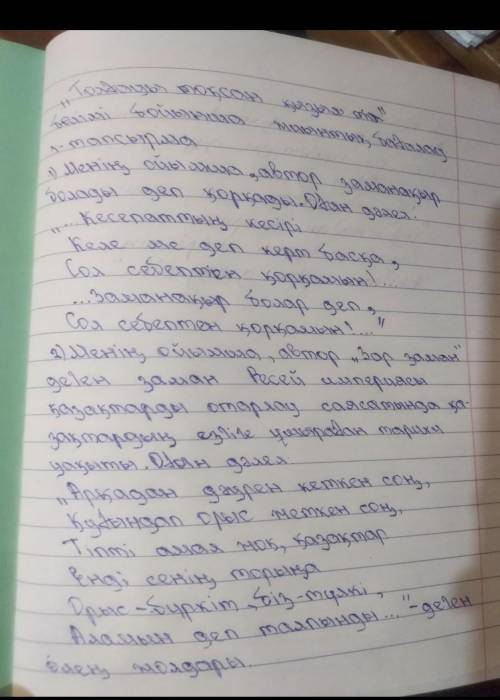 "Толғауы тоқсан қызыл тіл"
бөлімі бойынша жиынтық бағалау
1-тапсырма
1) Менің ойымша, автор заманақыр
болады деп қорқады. Оған дәлел:
"...Кесепаттың кесірі
Келе ме деп керт басқа,
Сол себептен қорқамын!...
...Заманақыр болар деп,
Сол себептен қорқамын!..."
2) Менің ойымша, автор "Зар заман"
деген заман Ресей империясы
қазақтарды отарлау саясатында қа-
зақтардың езгіге ұшыраған тарихи
уақыты. Оған дәлел
"Арқадан дәурен кеткен соң,
Қуғындап орыс жеткен соң,
Тіпті амал жоқ, қазақтар
Енді сенің торыңа
Орыс-бүркіт, біз-түлкі,
Аламын деп талпынды..." - деген
өлең жолдары.